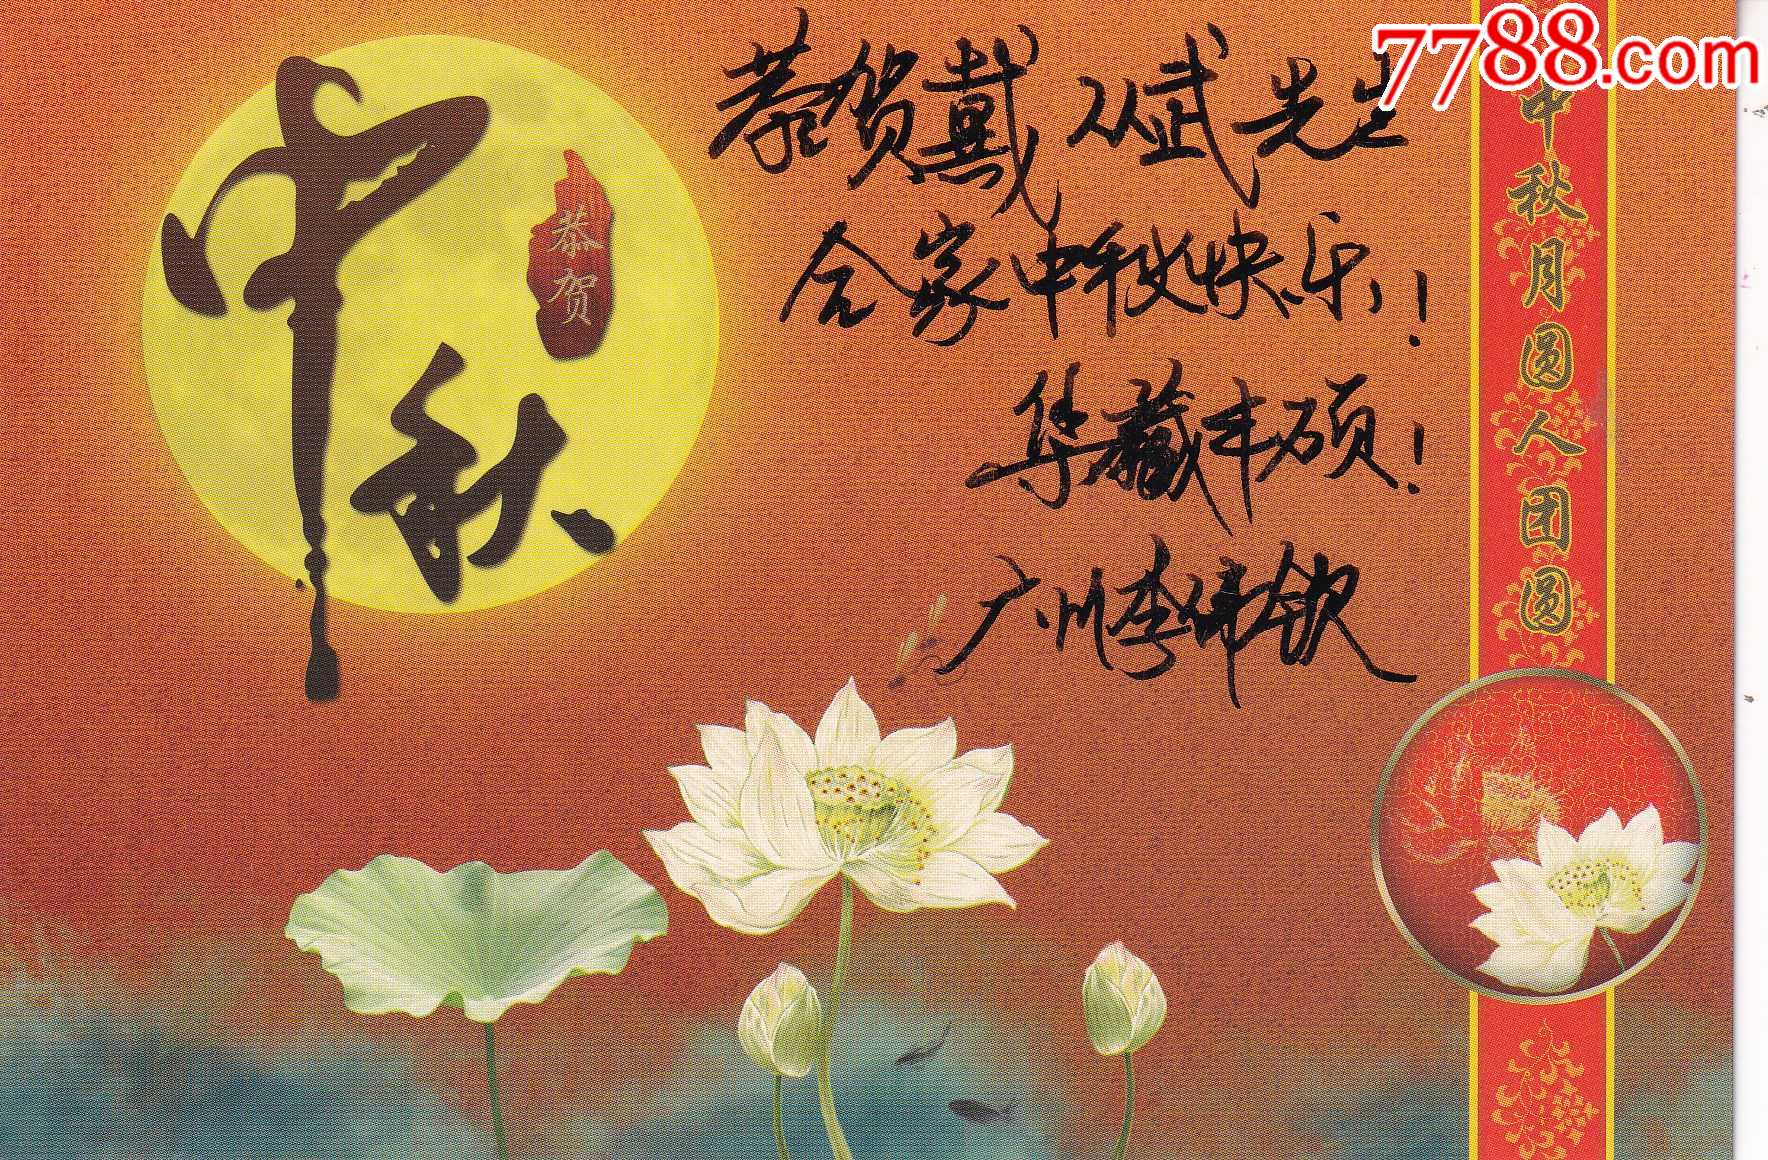 中秋
恭贺
恭贺戴从武先生
合家中秋快乐!
集藏丰硕!
广州李伟钦
中秋月圆人团圆
7788.com